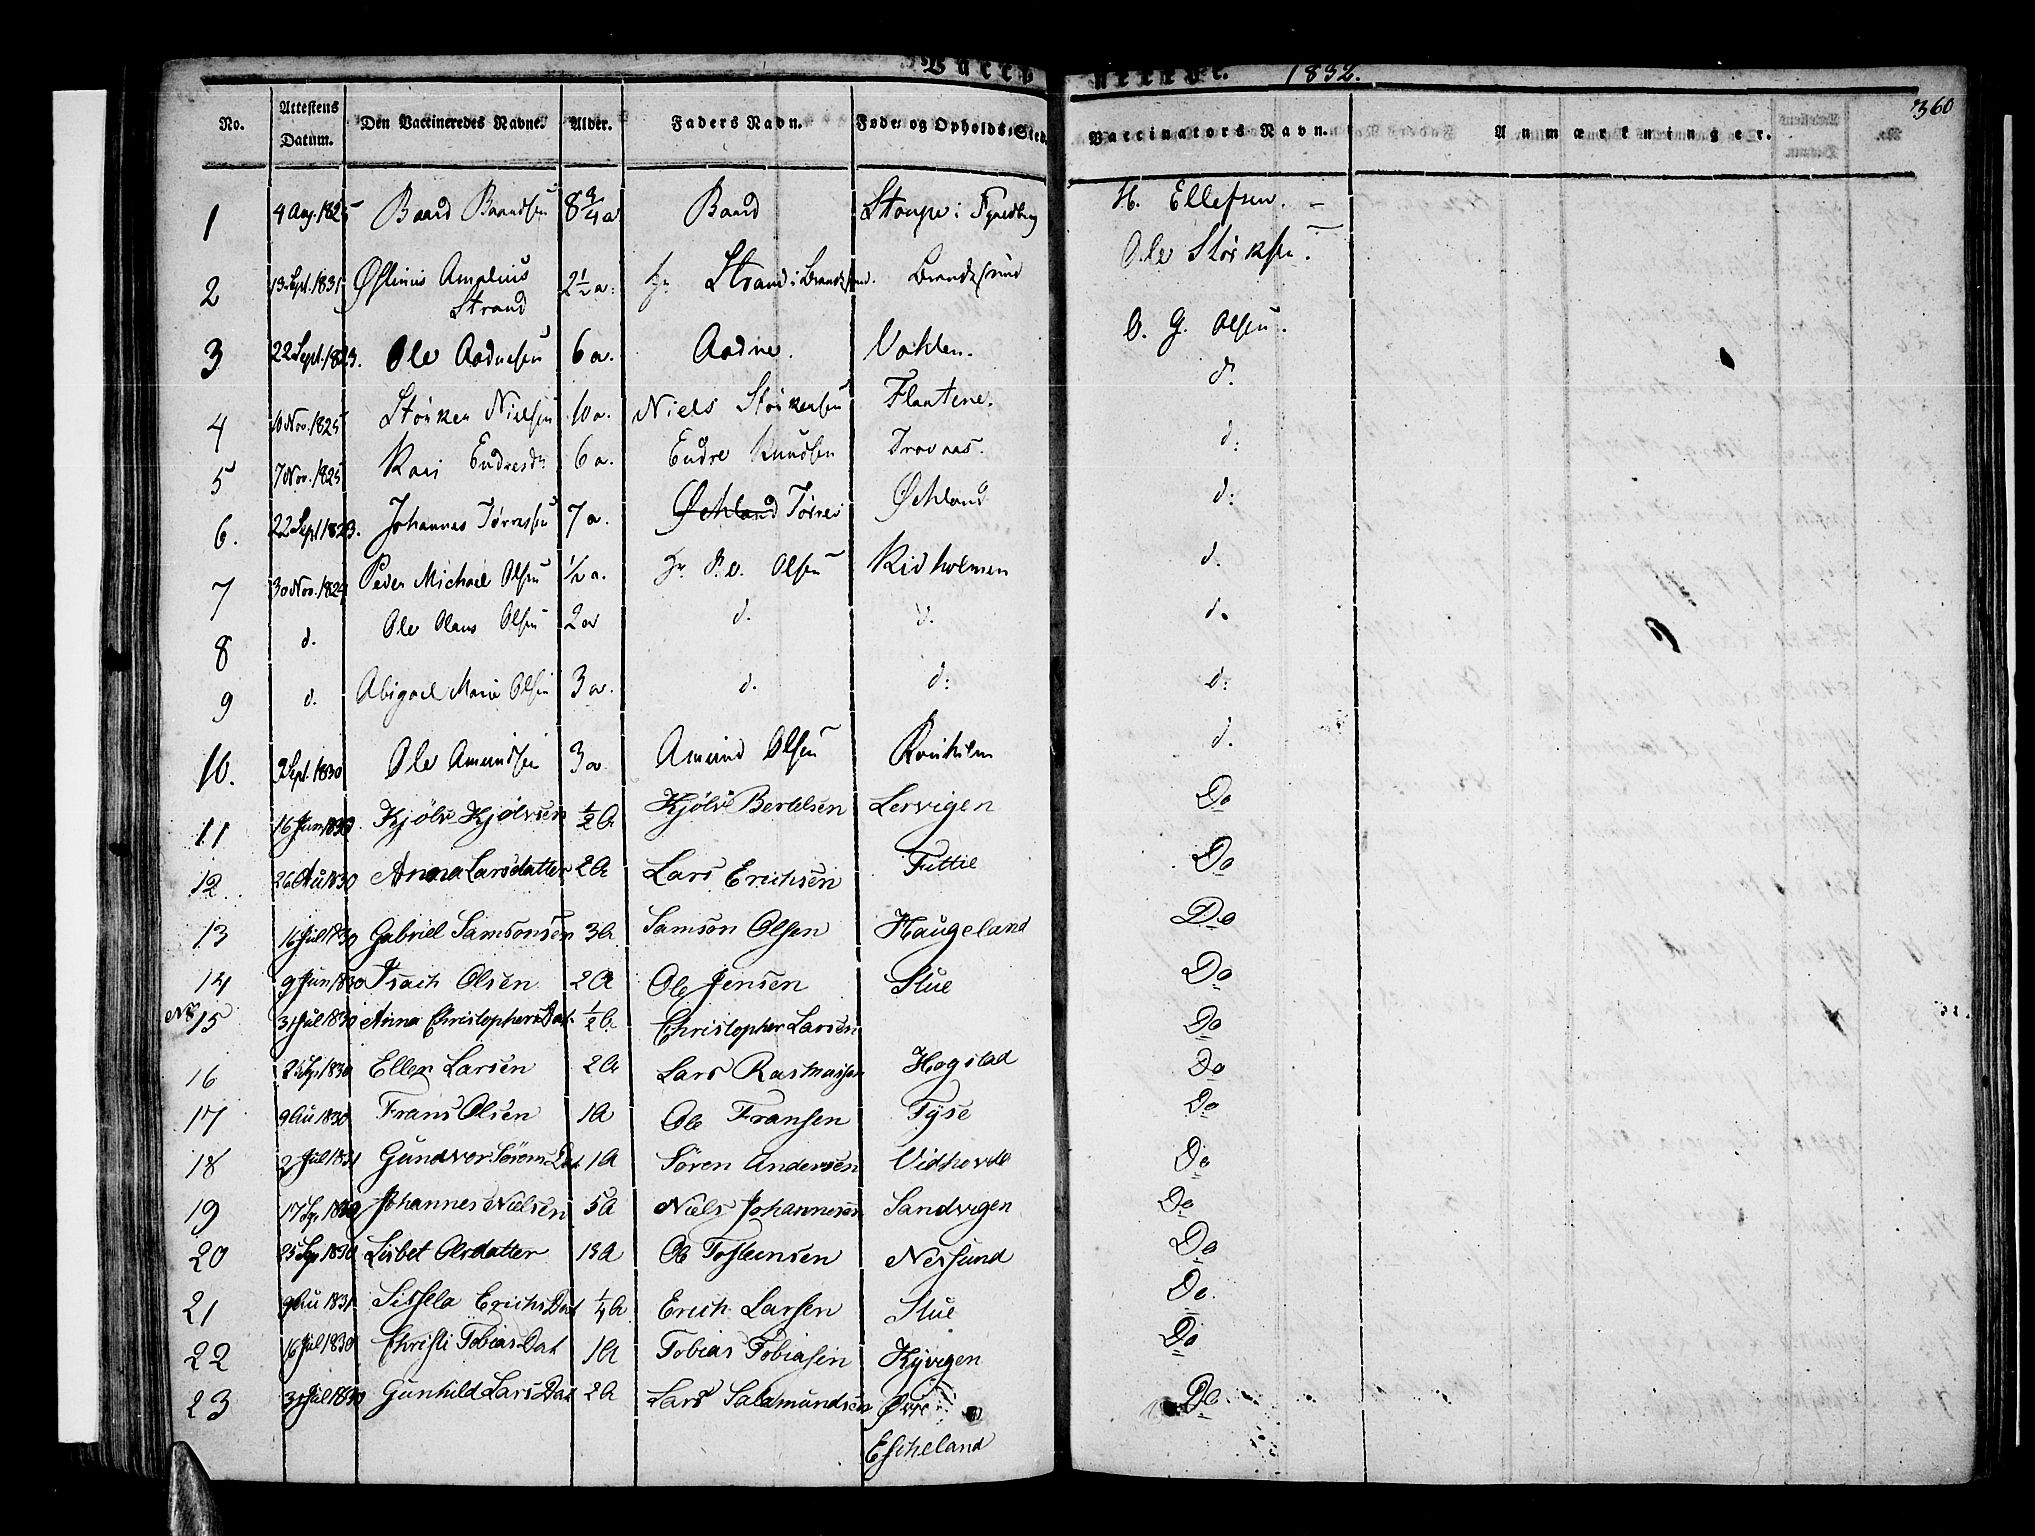 Vacci nerede. 1832.
360
No. Attestens Datum. Den Vaccineredes Navne. Alder. Faders Navn. Føde- og Opholds-Sted. Vaccinators Navn. Anmærkninger.
1 4 Aug. 1825 Baard Baardsen 8 3/4 a Baard H. Ellefsen.
2 13 Sept. 1831 Østinus Amelius Strand 2 1/2 a: Hr. Strand i Brandsund. Brandsund Ole Størksen.
3 22 Sept. 1823. Ole Aadnesen 6 a. Aadne. Vakler. O. G. Olsen.
4 10 Nov. 1825 Størker Nielsen 10 a. Niels Størkersen Flaatene. d.
5 7 Nov. 1825 Kari Endresdr 6 a. Endre Knudsen Trovaas. d:
6. 22 Sept 1823. Johannes Tørresen 7 a. Økland Tørres Økland d:
7 30 Nov. 1824 Peder Michael Olsen 1/2 a. Hr. P. O. Olsen Kidholmen d.
8 d. Ole Olaus Olsen 2 a d. d. d.
9 d. Abigael Marie Olsen 3 a. d. d: d:
10. 9 Sept. 1830 Ole Amundsen 3 a. Amund Olsen d.
11 16 Jun 1830 Kjölv Kjölvsen 1/2 A Kjölv Bertelsen Lervigen Do
12. 26 Au 1830 Anna Larsdatter 2 A Lars Erichsen Fittie Do
13 16 Jul 1830 Gabriel Samsonsen 3 A. Samson Olsen Haugeland Do
14 9 Jun 1830 Isach Olsen 2 A Ole Jensen Stue Do
No 15 31 Jul 1830 Anna Christophers Dat. 1/2 A. Christopher Larsen Do
16 1830 Ellen Larsen 2 A Lars Rasmussen Hogstad Do
17 9 Au 1830 Frans Olsen 1 A Ole Fransen Tyse Do
18 2 Jul 1831 Gundvor Sörens Dat 1 A Sören Andersen Vidhovde Do
19 17 Sep 1830 Johannes Nielsen 5 A Niels Johannesen Sandvigen Do
20 25 Sep 1830 Lisbet Olsdatter 13 A Ole Tosteensen Nessund Do
21 9 Au 1831 Sissela Erichs Dat 1/4 A Erich Larsen Stue Do.
22 16 Jul 1830 Christi Tobias Dat 1 A Tobias Tobiasen Kyvigen Do
23 31 Jul 1830 Gunhild Lars Dat 2 A Lars Salamundsen Øvre Do.
Escheland